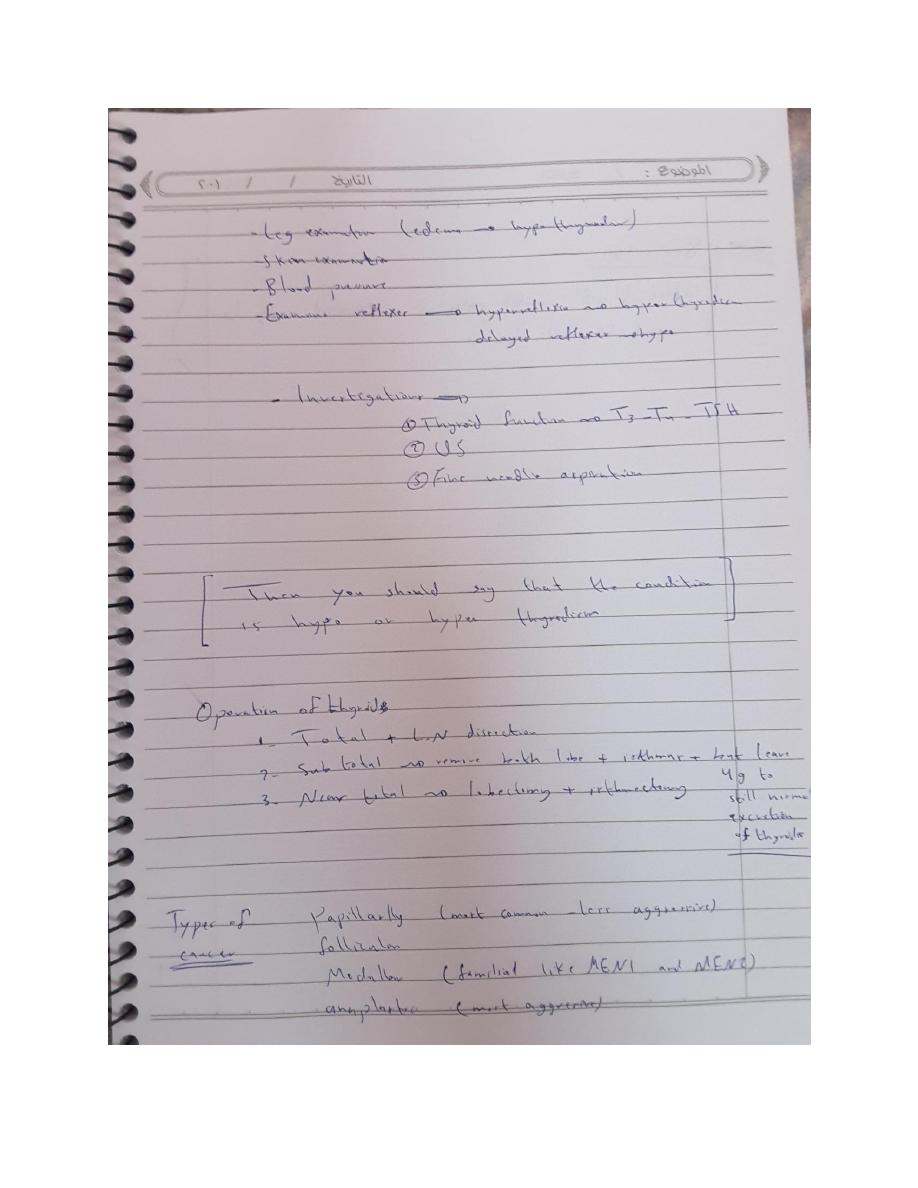 الموضوع :
التاريخ / / ٢٠١
- Leg examination (edema → hypothyroidism)
- Skin examination
- Blood pressure
- Examine reflexes → hyperreflexia → hyperthyroidism
delayed reflexes → hypo
- Investigations →
① Thyroid function → T3 - T4 - TSH
② US
③ Fine needle aspiration
[ Then you should say that the condition
is hypo or hyper thyrodism ]
Operation of thyroids
1. Total + L.N disection
2. Sub total → remove both lobe + isthmus + but leave
4g to
still normal
excretion
of thyroids
3. Near total → lobectomy + isthmectomy
Types of
cancer
Papillarly (most common - less aggressive)
follicular
Medullar (familial like MEN1 and MEN2)
annplastic (most aggressive)